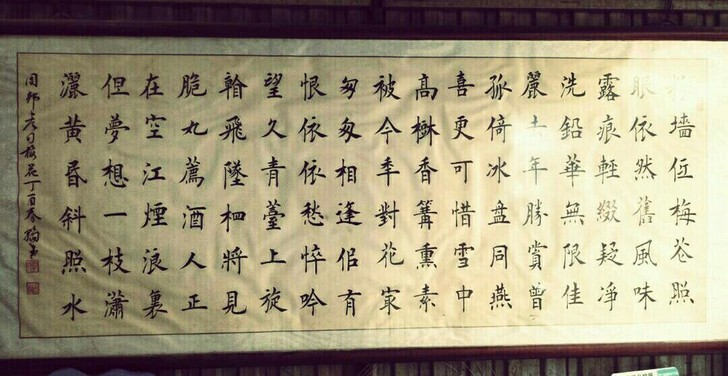 粉牆低梅花照
眼依然舊風味
露痕輕綴疑淨
洗鉛華無限佳
麗去年勝賞曾
孤倚冰盘同燕
喜更可惜雪中
高樹香篝熏素
被今年對花最
匆匆相逢似有
恨依依愁悴吟
望久青薹上旋
看飛墜相將見
脆丸薦酒人正
在空江煙浪裏
但夢想一枝瀟
灑黃昏斜照水
周邦彥詞梅花丁酉春書